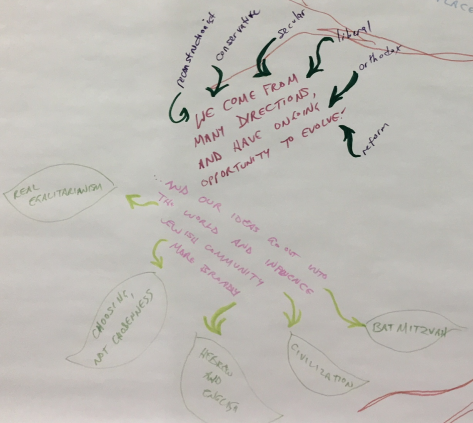 reconstructionist
conservative
secular
liberal
orthodox
WE COME FROM
MANY DIRECTIONS,
AND HAVE ONGOING
OPPORTUNITY TO EVOLVE.
reform
...AND OUR IDEAS GO OUT INTO
THE WORLD AND INFLUENCE
JEWISH COMMUNITY
MORE BROADLY
REAL
EGALITARIANISM
CHOOSING,
NOT CHOSENNESS
HEBREW
AND
ENGLISH
CIVILIZATION
BAT MITZVAH